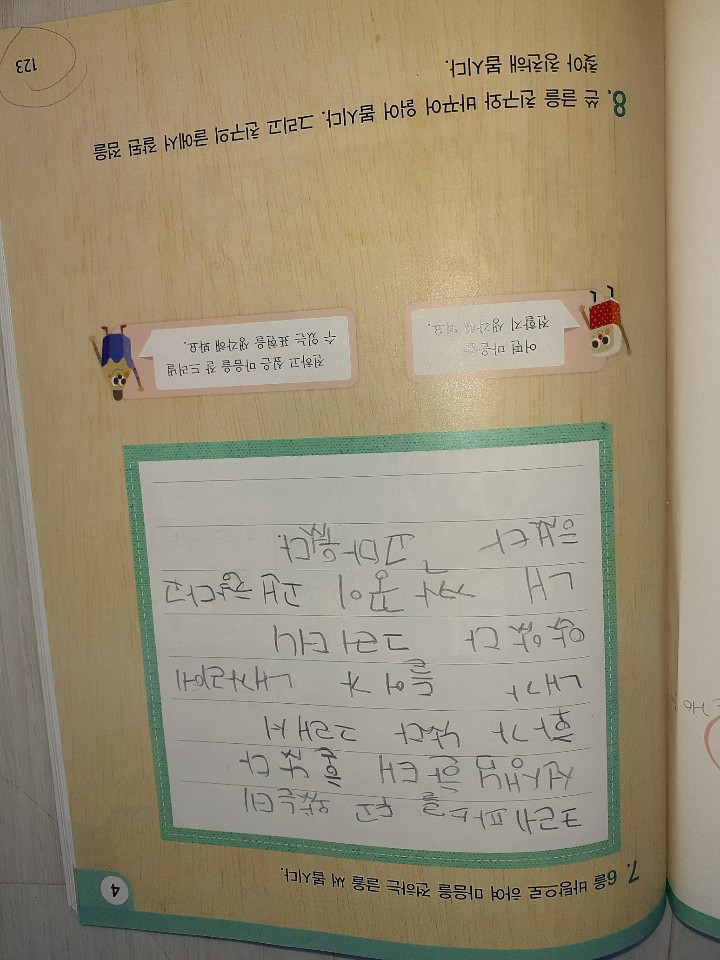 4
7. 6을 바탕으로 하여 마음을 전하는 글을 써 봅시다.
크레파스를 두고 왔는데
선생님 한테 혼났다
화가 났다 그래서
내가 들어가 내자리에
앉았다 그러더니
내 짝꿍이 괜찮다고
했다 고마웠다.
어떤 마음을
전할지 생각해 봐요.
전하고 싶은 마음을 잘 드러낼
수 있는 표현을 생각해 봐요.
8. 쓴 글을 친구와 바꾸어 읽어 봅시다. 그리고 친구의 글에서 잘된 점을
찾아 칭찬해 봅시다.
123